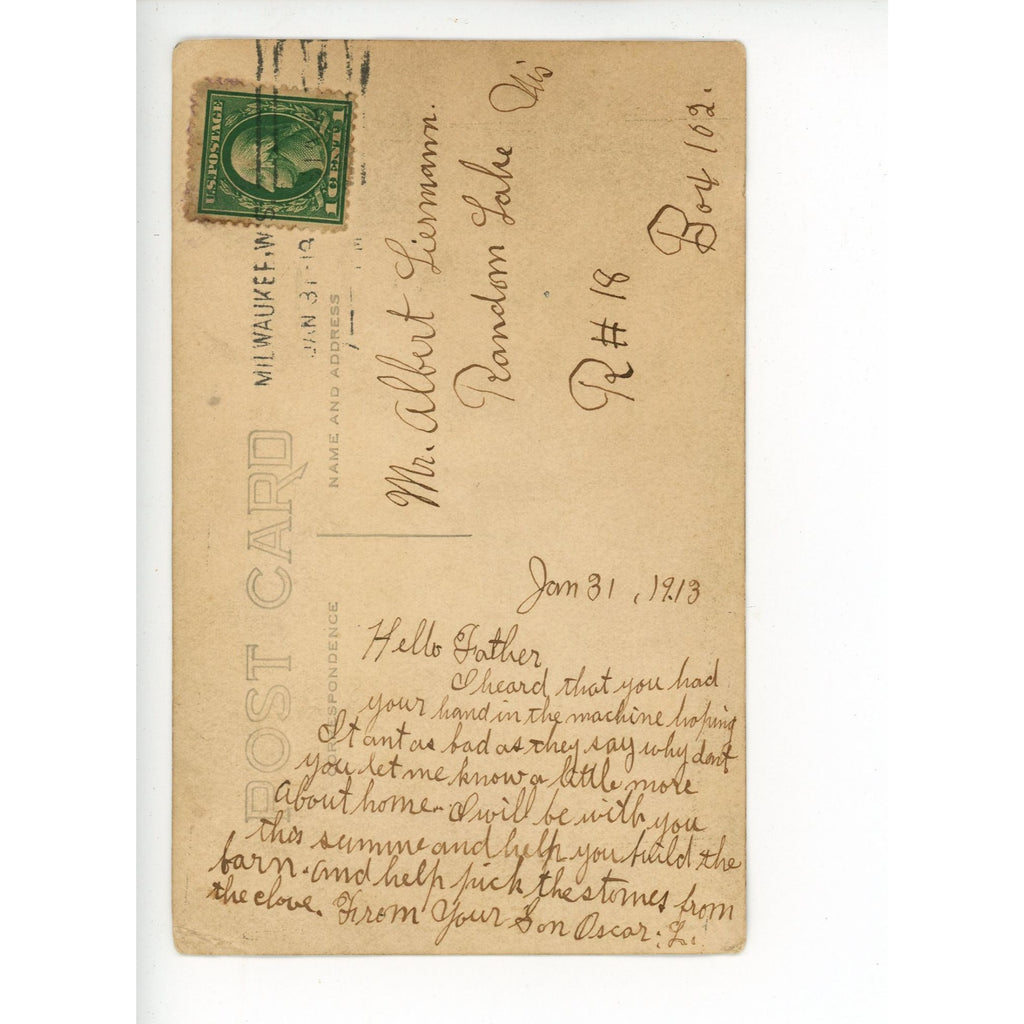 POST CARD
CORRESPONDENCE
NAME AND ADDRESS
U.S. POSTAGE
1 CENT 1
MILWAUKEE, WIS
JAN 31
Mr. Albert Liermann.
Random Lake Wis
R # 18
Box 102.
Jan 31, 1913
Hello Father
I heard that you had
your hand in the machine hoping
It ant as bad as they say why dont
you let me know a little more
About home. I will be with you
this summe and help you build the
barn. and help pick the stomes from
the clove. From Your Son Oscar. L.